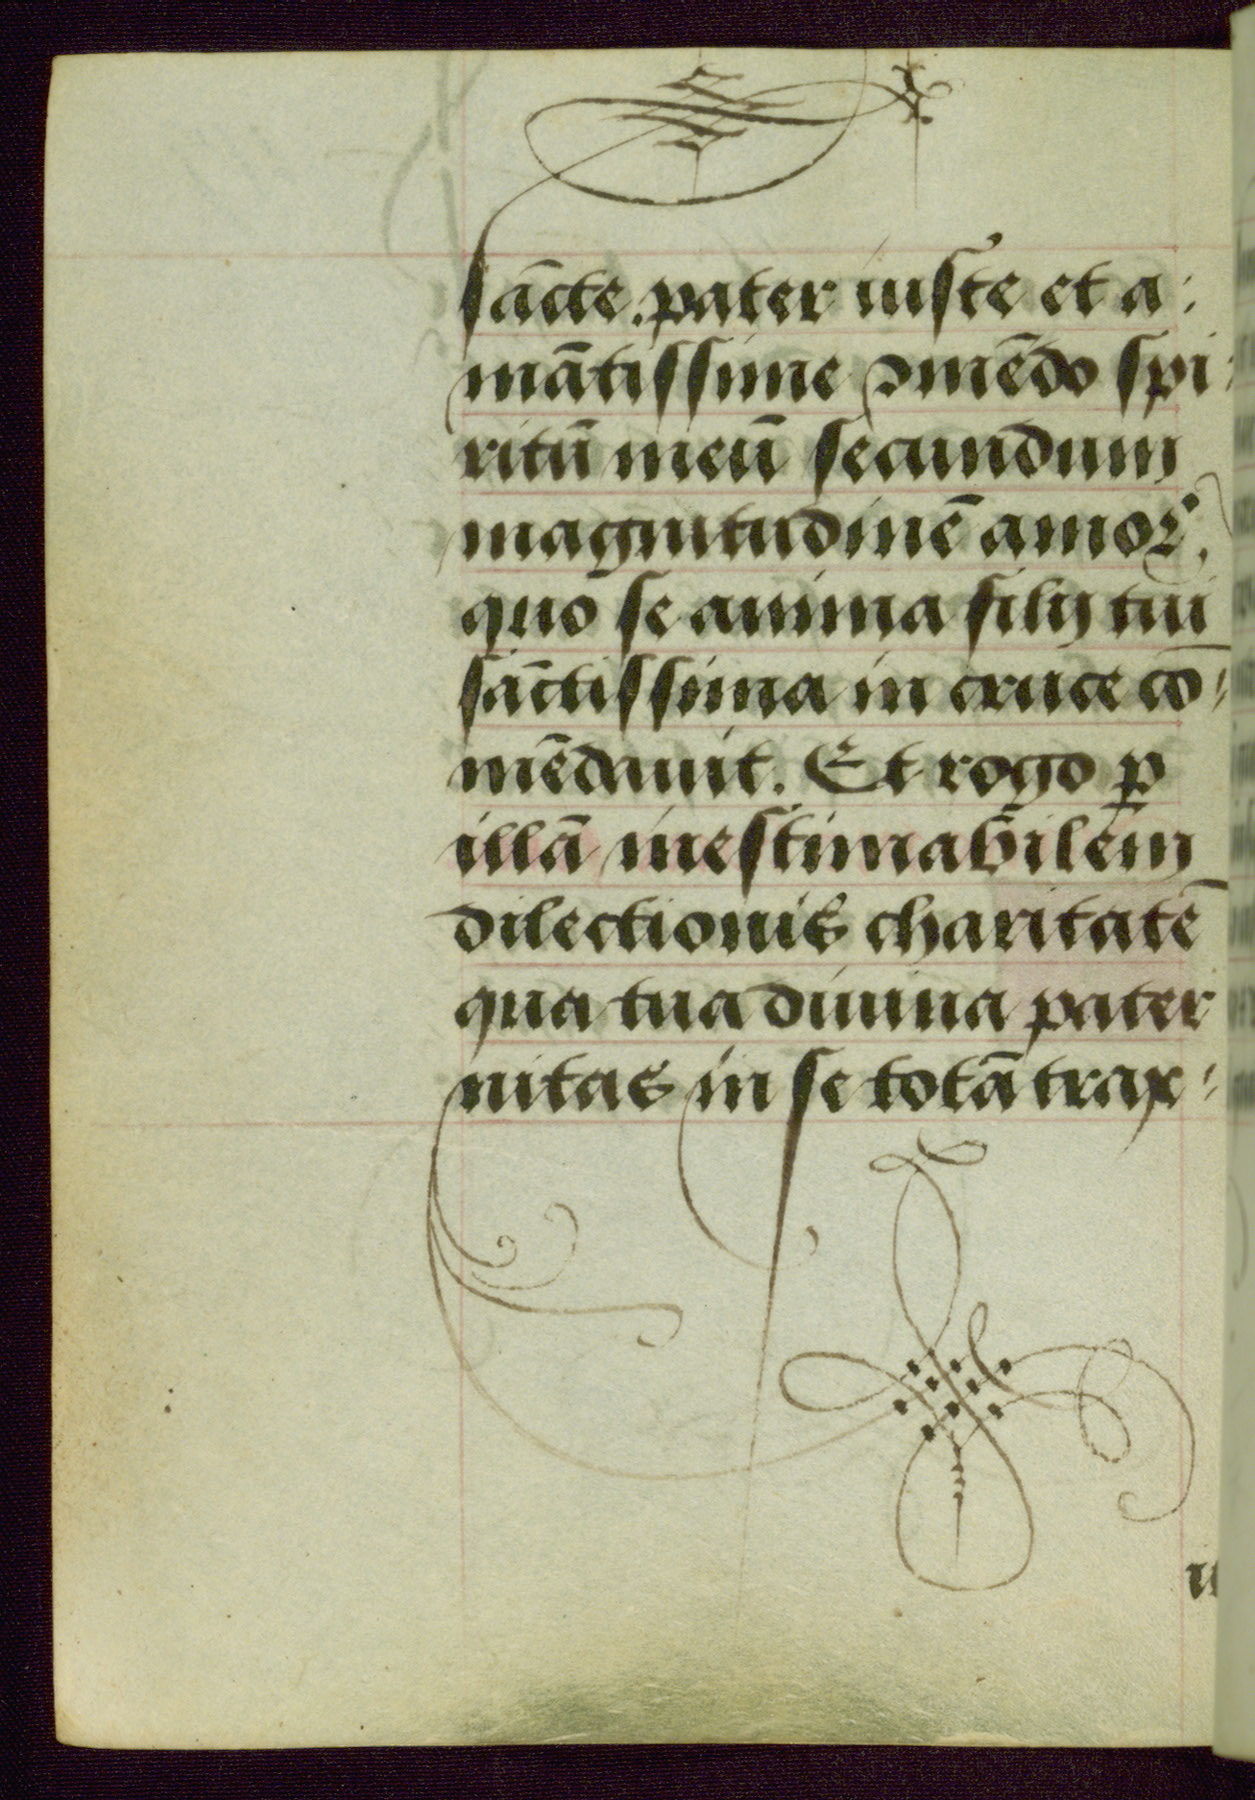 sācte. pater iuste et a:
mātissime ꝯmēdo spi:
ritū meū secundum
magnitudinē amorꝭ,
quo se anima filij tui
sāctissima in cruce cō:
mēdauit. Et rogo ꝑ
illā inestimabilem
dilectionis charitatē
qua tua diuina pater
nitas in se totā trax: